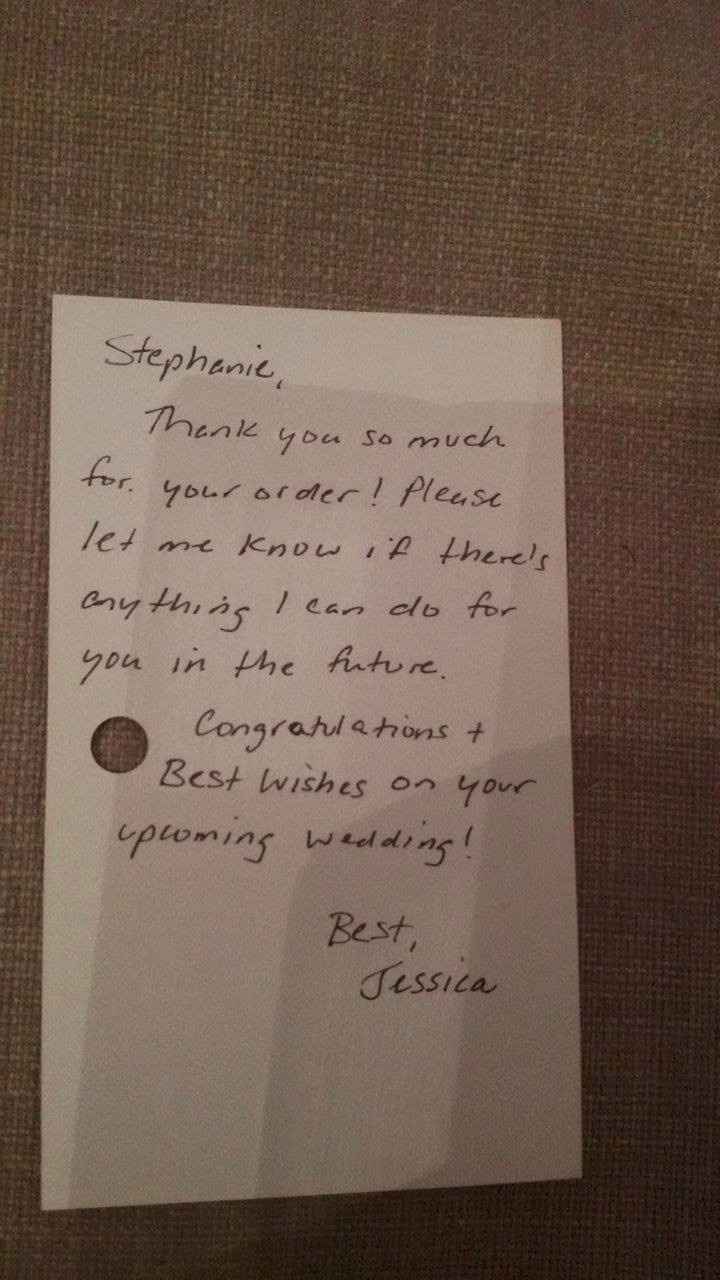 Stephanie,
Thank you so much
for. your order! Please
let me know if there's
anything I can do for
you in the future.
Congratulations +
Best Wishes on your
upcoming wedding!
Best,
Jessica